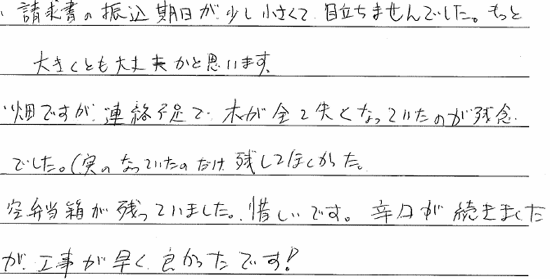 、請求書の振込期日が少し小さくて目立ちませんでした。もっと
大きくとも大丈夫かと思います。
畑ですが、連絡不足で、木が全て失くなっていたのが残念
でした。(実のなっていたのだけ残してほしかった。
空弁当箱が残っていました。惜しいです。辛口が続きました
が、工事が早く、良かったです!